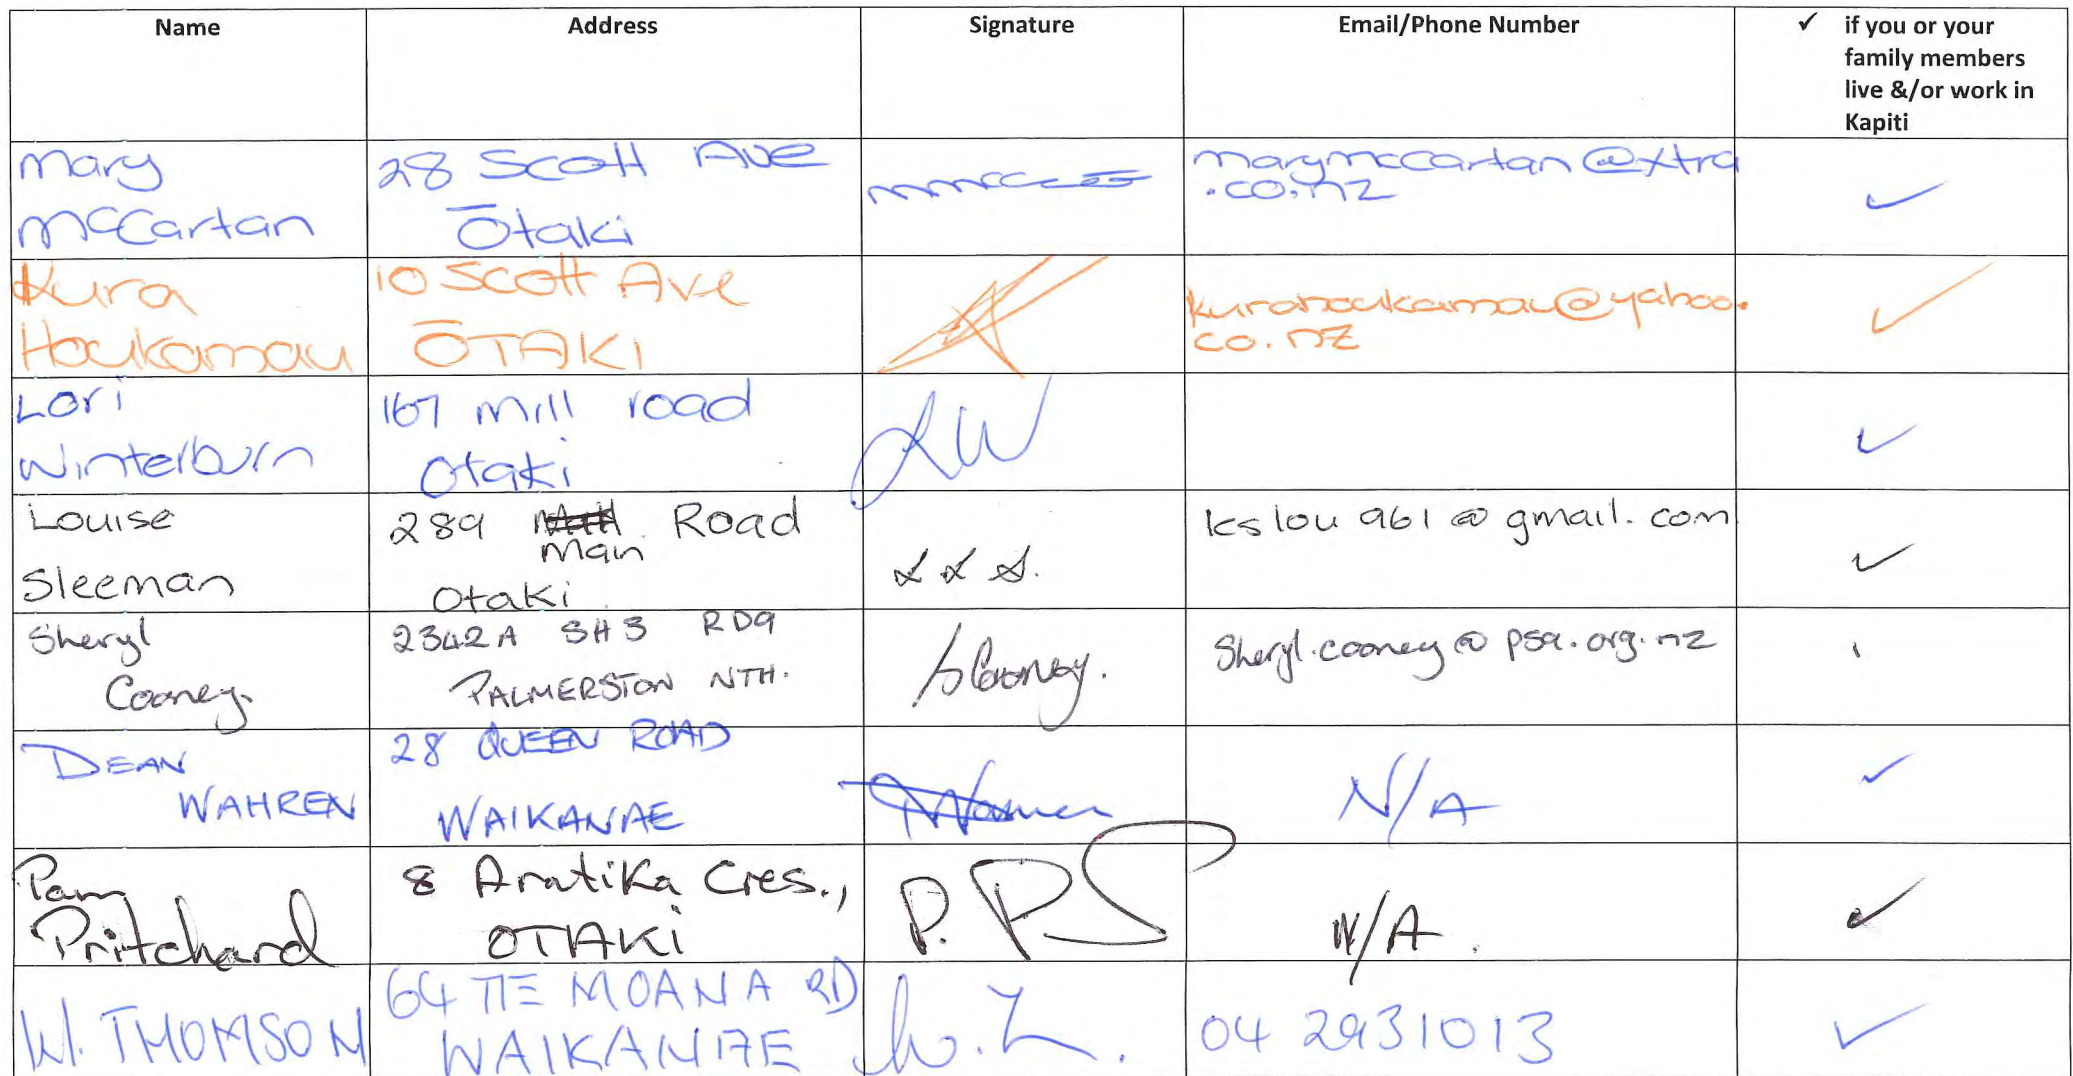 Name
Address
Signature
Email/Phone Number
✓ if you or your
family members
live &/or work in
Kapiti
Mary
McCartan
28 Scott Ave
Ōtaki
marymccartan@xtra
.co.nz
✓
Kura
Houkamau
10 Scott Ave
ŌTAKI
kurahoukamau@yahoo.
co.nz
✓
Lori
Winterburn
167 Mill road
Otaki
LW
✓
Louise
Sleeman
289 Road
Main
Otaki
L L S.
kslou961@gmail.com
✓
Sheryl
Cooney.
2342A SH3 RD9
PALMERSTON NTH.
SCooney.
Sheryl.cooney@psa.org.nz
DEAN
WAHREN
28 QUEEN ROAD
WAIKANAE
N/A
✓
Pam
Pritchard
8 Aratika Cres.,
OTAKi
P. PS
N/A.
✓
W. THOMSON
64 TE MOANA RD
WAIKANAE
04 2931013
✓